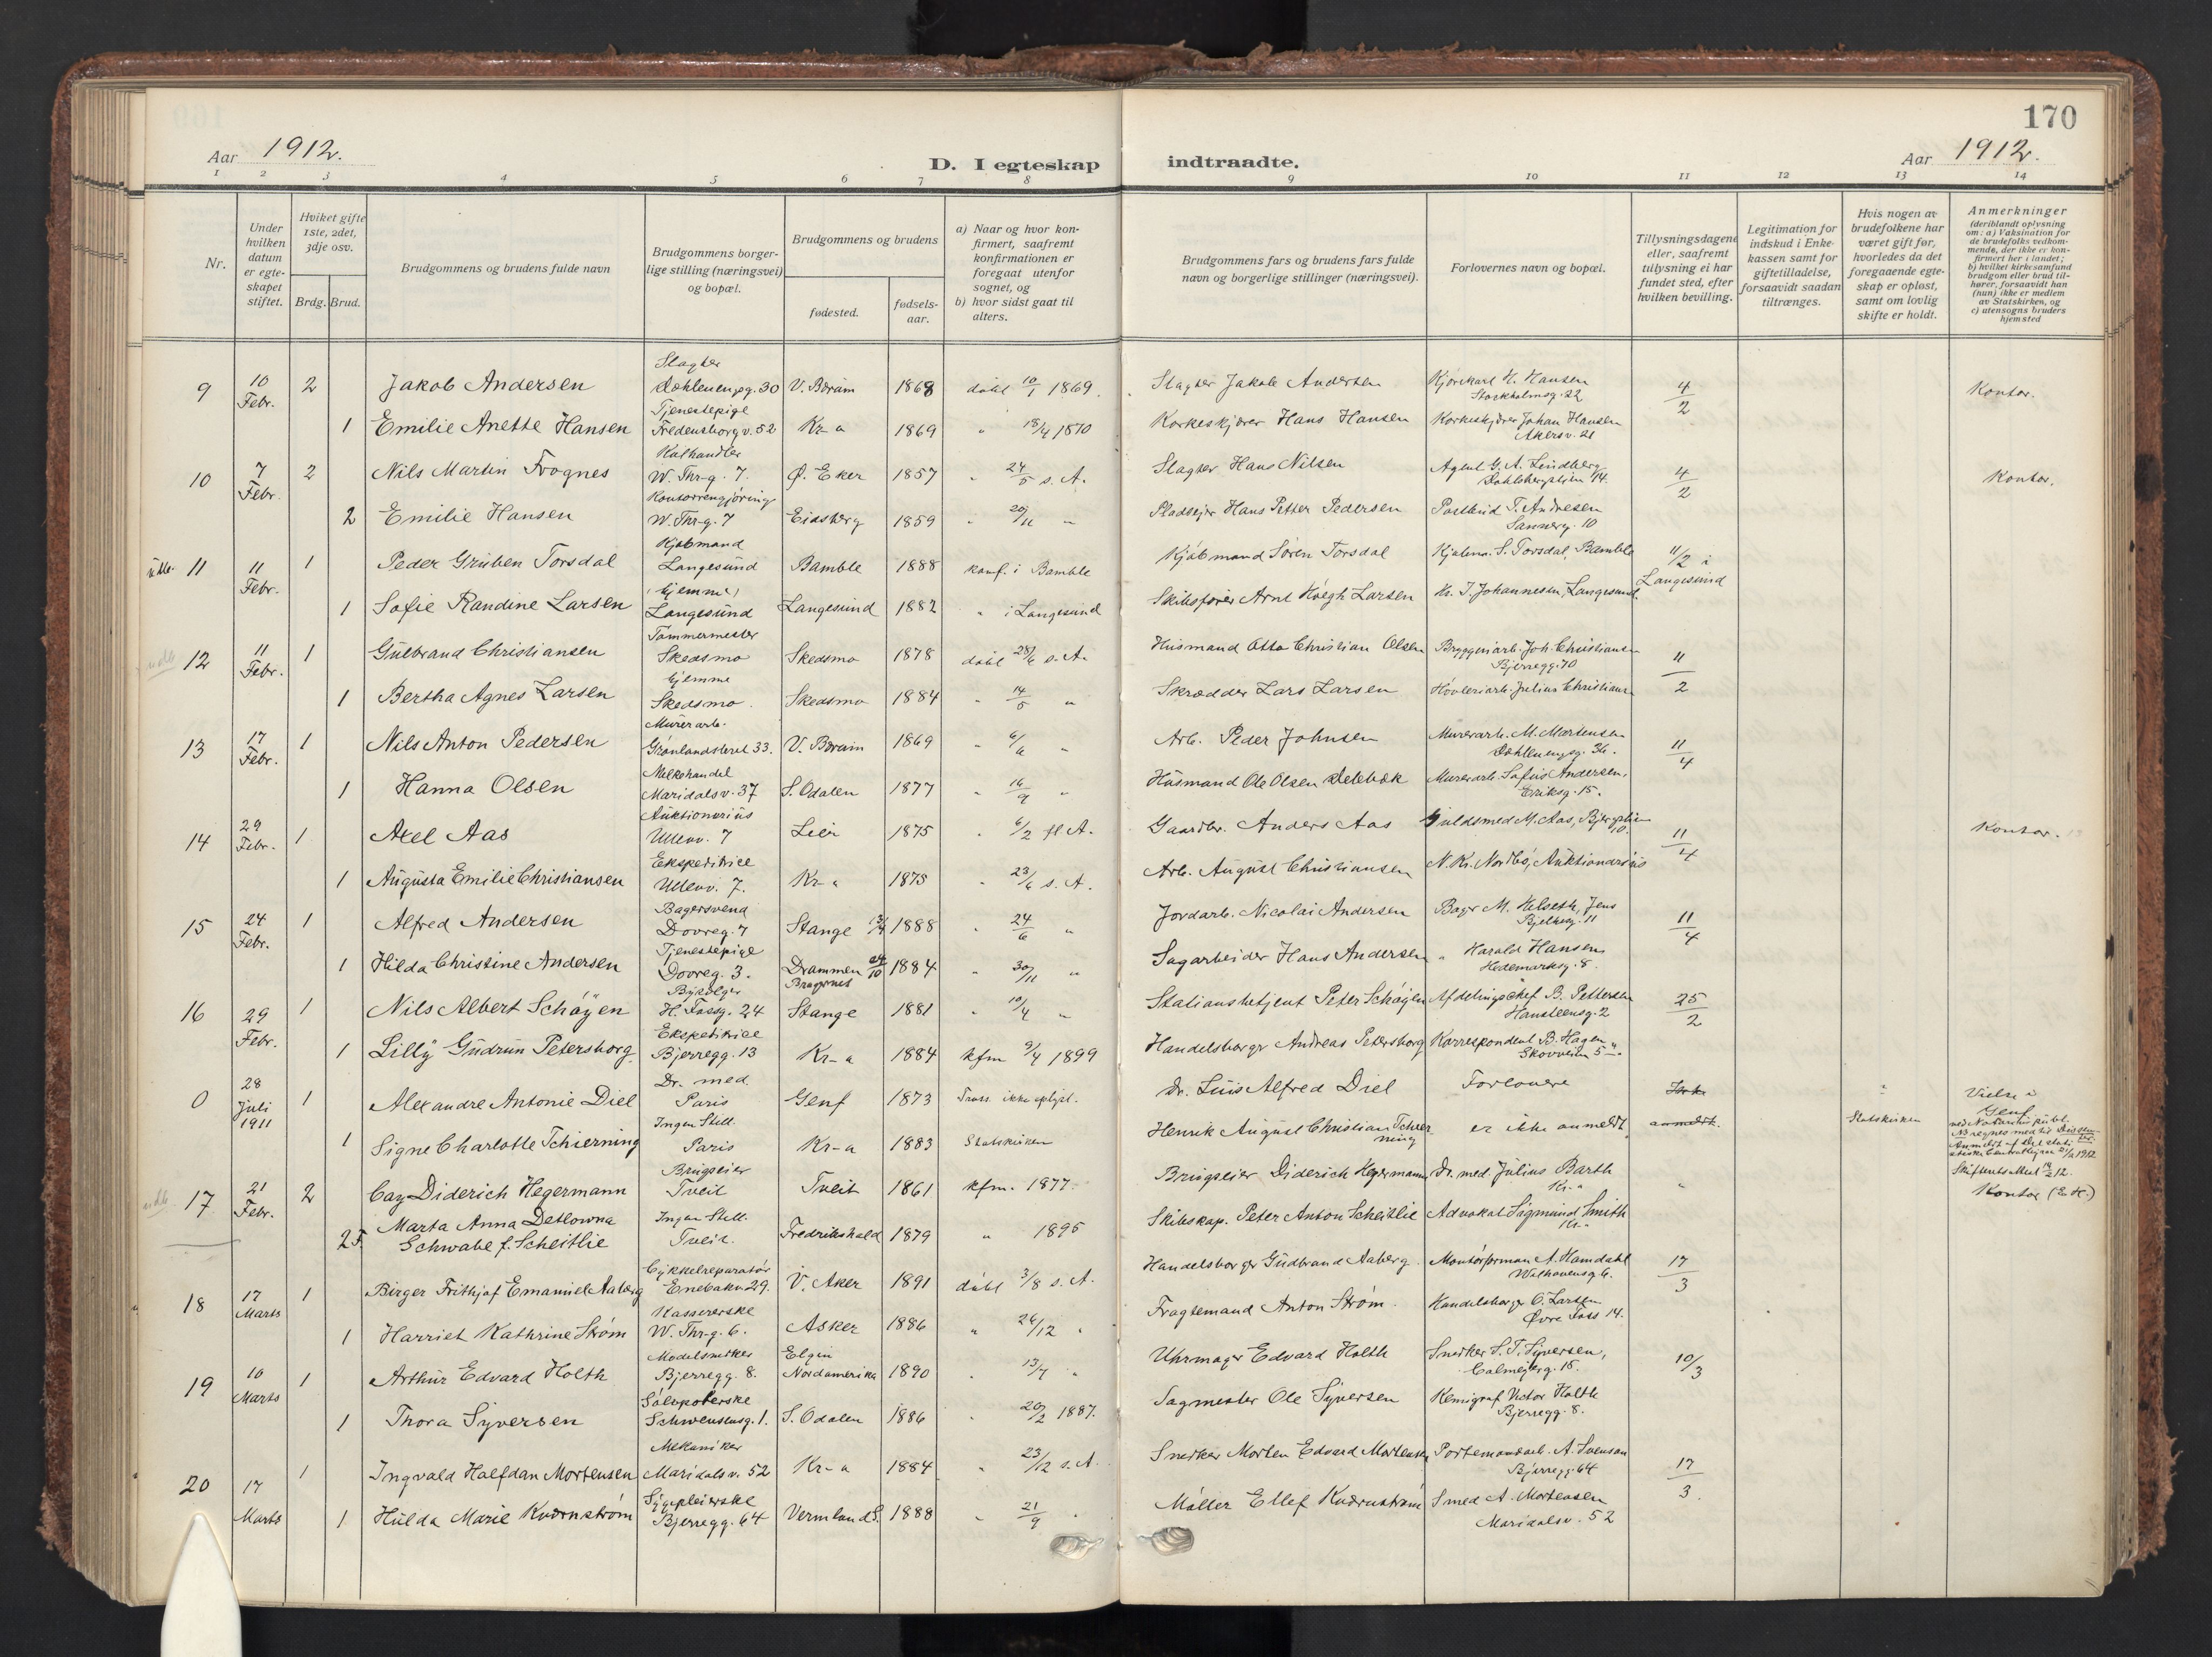 170
Aar 1912.
D. I egteskap indtraadte.
Aar 1912.
1 2 3 4 5 6 7 8 9 10 11 12 13 14
Nr.
Under hvilken datum er egteskapet stiftet.
Hviket gifte 1ste, 2det, 3dje osv.
Brdg. Brud.
Brudgommens og brudens fulde navn
Brudgommens borgerlige stilling (næringsvei) og bopæl.
Brudgommens og brudens
fødested.
fødselsaar.
a) Naar og hvor konfirmert, saafremt konfirmationen er foregaat utenfor sognet, og
b) hvor sidst gaat til alters.
Brudgommens fars og brudens fars fulde navn og borgerlige stillinger (næringsvei).
Forlovernes navn og bopæl.
Tillysningsdagene eller, saafremt tillysning ei har fundet sted, efter hvilken bevilling.
Legitimation for indskud i Enkekassen samt for giftetilladelse, forsaavidt saadan tiltrænges.
Hvis nogen av brudefolkene har været gift før, hvorledes da det foregaaende egteskap er opløst, samt om lovlig skifte er holdt.
Anmerkninger (deriblandt oplysning om: a) Vaksination for de brudefolks vedkommende, der ikke er konfirmert her i landet; b) hvilket kirkesamfund brudgom eller brud tilhører, forsaavidt han (hun) ikke er medlem av Statskirken, og c) utensogns bruders hjemsted
9 10 Febr. 2 Jakob Andersen Slagter Dæhlenengg. 30 V. Bærum 1868 døbt 10/1 1869. Slagter Jakob Andersen Kjørekarl H. Hansen Stockholmsg. 22 4/2 Kontor.
1 Emilie Anette Hansen Tjenestepige Fredensborgv. 52 Kr-a 1869 " 18/4 1870 Korkeskjærer Hans Hansen Korkeskjærer Johan Hansen Akersv. 21
10 7 Febr. 2 Nils Martin Frognes Kulhandler W. Thr-g. 7. Ø. Eker 1857 " 24/5 s. A. Slagter Hans Nilsen Agent G. A. Lindberg Dahlsbergstien 14. 4/2 Kontor.
2 Emilie Hansen Kontorrengjøring W. Thr-g. 7 Eidsberg 1859 " 20/11 " Pladseier Hans Petter Pedersen Postbud T. Andresen Sannerg. 10
11 11 Febr. 1 Peder Gruben Torsdal Kjøbmand Langesund Bamble 1888 konf. i Bamble Kjøbmand Søren Torsdal Kjøbm. S. Torsdal, Bamble 11/2 i Langesund
1 Sofie Randine Larsen (hjemme) Langesund Langesund 1882 " i Langesund Skibsfører Arnt Høegh Larsen K. I. Johannesen, Langesund.
12 11 Febr. 1 Gulbrand Christiansen Tømmermester Skedsmo Skedsmo 1878 døbt 28/6 s. A. Husmand Otto Christian Olsen Bryggeriarb. Joh. Christiansen Bjerregg. 10 11/2
1 Bertha Agnes Larsen hjemme Skedsmo. Skedsmo 1884 " 14/5 " Skrædder Lars Larsen Høvleriarb. Julius Christiansen
13 17 Febr. 1 Nils Anton Pedersen Murerarb. Grønlandsleret 33. V. Bærum 1869 " 6/6 " Arb. Peder Johnsen Murerarb. M. Martensen Dæhlenengg. 36. 11/4
1 Hanna Olsen Melkehandel Maridalsv. 37 S. Odalen 1877 " 16/9 " Husmand Ole Olsen Murerarb. Sofus Andersen, Eriksg. 15.
14 29 Febr. 1 Axel Aas Auktionarius Ullevv. 7 Lier 1875 " 6/2 fl A. Gaardbr. Anders Aas Guldsmed M. Aas, 11/4 Kontor.
1 Augusta Emilie Christiansen Ekspeditrice Ullevv. 7. Kr-a 1875 " 23/6 s. A. Arb. August Christiansen N. Kr. Nordbø, Auktionarius
15 24 Febr. 1 Alfred Andersen Bagersvend Dovreg. 7 Stange 13/4 1888 " 24/6 " Jordarb. Nicolai Andersen Bager M. Helseth, Jens Bjelkesg. 11 11/4
1 Hilda Christine Andersen Tjenestepige Dovreg. 3. Drammen Bragernes 24/10 1884 " 30/11 " Sagarbeider Hans Andersen " Harald Hansen Hedemarksg. 8.
16 29 Febr. 1 Nils Albert Schøyen H. Fossg. 24 Stange 1881 " 10/4 " Stationsbetjent Peter Schøyen Afdelingschef B. Pettersen Hausteensg. 2 25/2
1 Lilly Gudrun Petersborg Ekspeditrice Bjerregg. 13 Kr-a 1884 kfm 9/4 1899 Handelsborger Andreas Petersborg Korrespondent B. Hagen Skovveien 5
0 28 Juli 1911 1 Alexandre Antonie Diel Dr. med. Paris Genf 1873 Tross. ikke oplyst. Dr. Luis Alfred Diel Forlovere Ikke Vielse i Genf
1 Signe Charlotte Tchierning Ingen Still. Paris Kr-a 1883 Statskirken Henrik August Christian Tcherning er ikke anmeldt. anmeldt. Statskirken
17 21 Febr. 2 Cay Diderich Hegermann Brugseier Tveit Tveit 1861 kfm. 1877. Brugseier Diderich Hegermann Dr. med. Julius Barth Kr.a " Kontor (E. H.)
2 F. Marta Anna Detlowna Schwabe f. Scheitlie Ingen Still. Tveit. Fredrikshald 1879 " 1895 Skibskap. Peter Anton Scheitlie Advokat Sigmund Smith Kr.
18 17 Marts 1 Birger Frithjof Emanuel Aaberg Cykkelreparatør Enebakv 29. V. Aker 1891 døbt 3/8 s. A. Handelsborger Gudbrand Aaberg. Montørforman A. Hamdahl Welhavensg. 6. 17/3
1 Harriet Kathrine Strøm Kassererske W. Thr-g. 6. Asker 1886 " 26/12 " Fragtemand Anton Strøm. Handelsborger O. Larsen Øvre Foss 14.
19 10 Marts 1 Arthur Edvard Holth Modelsnekker Bjerregg. 8. Elgin Nordamerika 1890 " 13/7 " Uhrmager Edvard Holth Snekker S. T. Syversen, Calmeyerg. 15. 10/3
1 Thora Syversen Sølvpolerske Schwensensg. 1. S. Odalen 1886 " 20/2 1887. Sagmester Ole Syversen Kemigraf Victor Holth Bjerregg. 8.
20 17 Marts 1 Ingvald Halfdan Mortensen Mekaniker Maridalsv. 52 Kr-a 1884 " 23/12 s. A. Snekker Morten Edvard Mortensen Portemonarb. A. Svensen Bjerregg. 64 17/3.
1 Hulda Marie Kvarnstrøm Sygepleierske Bjerregg. 64 Vermland S. 1888 " 21/9 " Møller Ellef Kvarnstrøm Smed A. Mortensen Maridalsv. 52